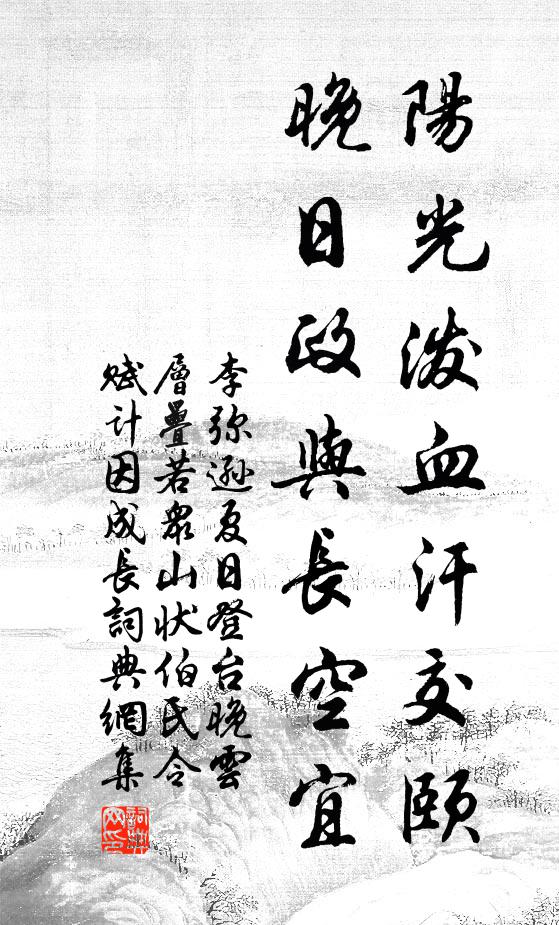 陽光潑血汗交頤
晚日政與長空宜
李弥遜夏日登台晚雲
層疊若衆山狀伯氏令
賦計因成長詞典網集